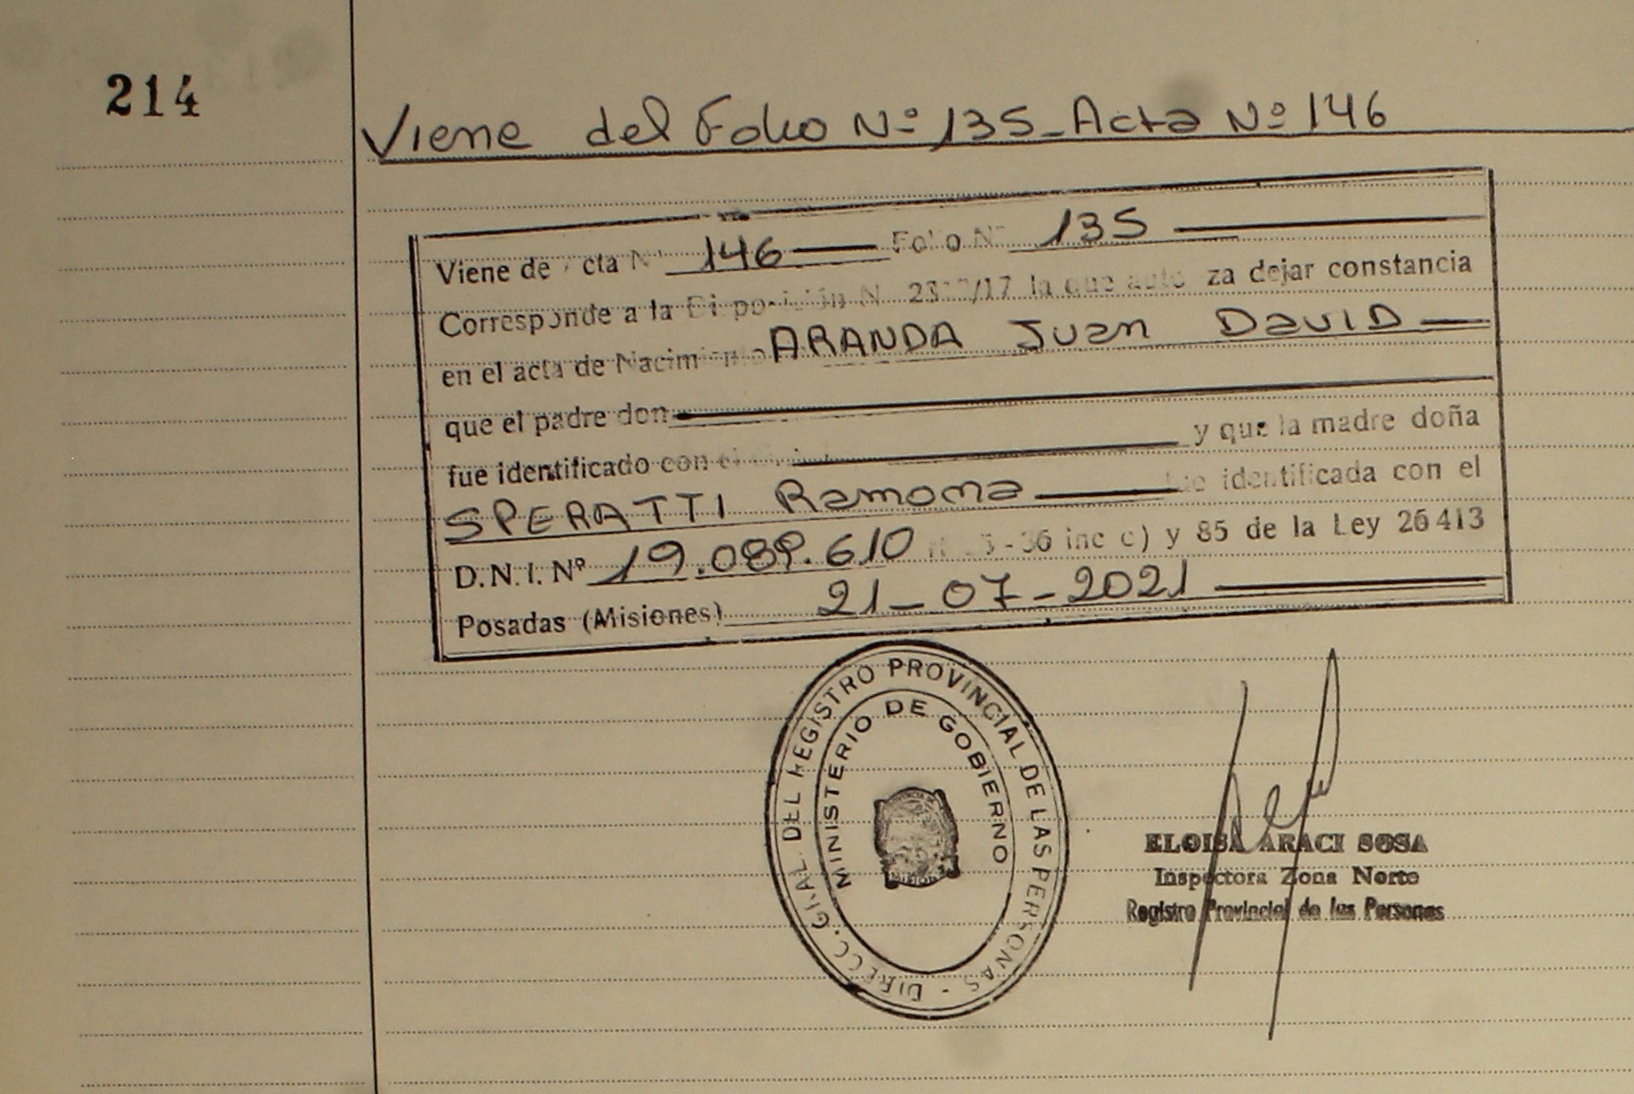 214
Viene del Folio Nº 135_Acta Nº 146
Viene de cta N 146 Fo o N 135
Corresponde a la /17 la que za dejar constancia
en el acta de ARANDA Juan David
que el padre don
fue identificado con y que la madre doña
SPERATTI Ramona identificada con el
D.N.I. Nº 19.089.610 36 inc c) y 85 de la Ley 26413
Posadas (Misiones) 21-07-2021
DIRECC. GRAL. DEL REGISTRO PROVINCIAL DE LAS PERSONAS -
MINISTERIO DE GOBIERNO
ELOISA ARACI SOSA
Inspectora Zona Norte
Registro Provincial de las Personas